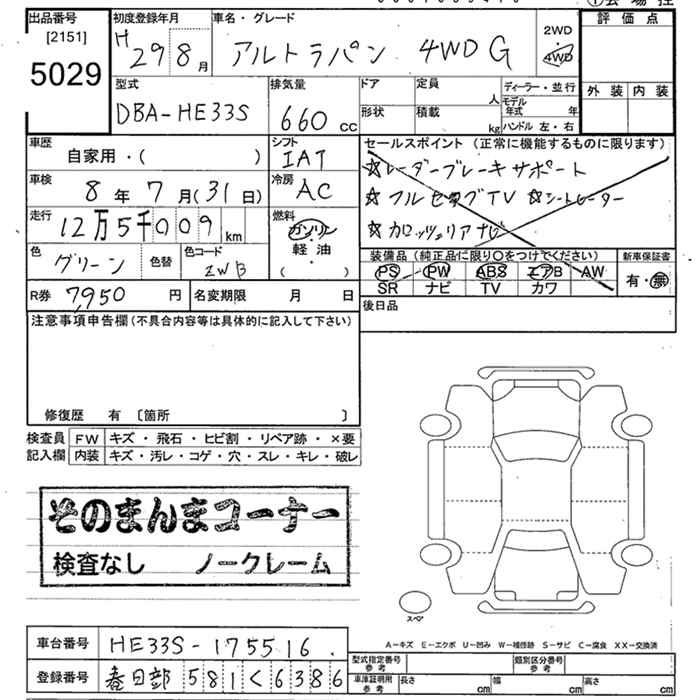 出品番号
[2151]
5029
初度登録年月
H 29 8 月
車名・グレード
アルトラパン 4WD G
2WD
4WD
評価点
外装 内装
型式
DBA-HE33S
排気量
660 cc
ドア
定員
人
形状
積載
kg
ディーラー・並行
モデル年式 年
ハンドル 左・右
車歴
自家用・( )
シフト
IAT
車検
8 年 7 月(31日)
冷房
AC
走行
12万5千009 km
燃料
ガソリン
軽油
( )
色
グリーン
色替
色コード
ZWB
R券 7,950 円
名変期限 月 日
セールスポイント (正常に機能するものに限ります)
☆レーダーブレーキサポート
☆フルセグTV ☆シートヒーター
☆カロッツェリアナビ
装備品(純正品に限り○をつけてください)
PS PW ABS エアB AW
SR ナビ TV カワ
新車保証書
有・無
後日品
注意事項申告欄(不具合内容等は具体的に記入して下さい)
修復歴 有 〔箇所 〕
検査員記入欄
FW キズ・飛石・ヒビ割・リペア跡・×要
内装 キズ・汚レ・コゲ・穴・スレ・キレ・破レ
そのまんまコーナー
検査なし ノークレーム
スペア
A-キズ E-エクボ U-凹み W-補修跡 S-サビ C-腐食 XX-交換済
車台番号 HE33S-175516
登録番号 春日部 581 く 6386
型式指定番号 参考
類別区分番号 参考
車庫証明用 参考
長さ cm 幅 cm 高さ cm